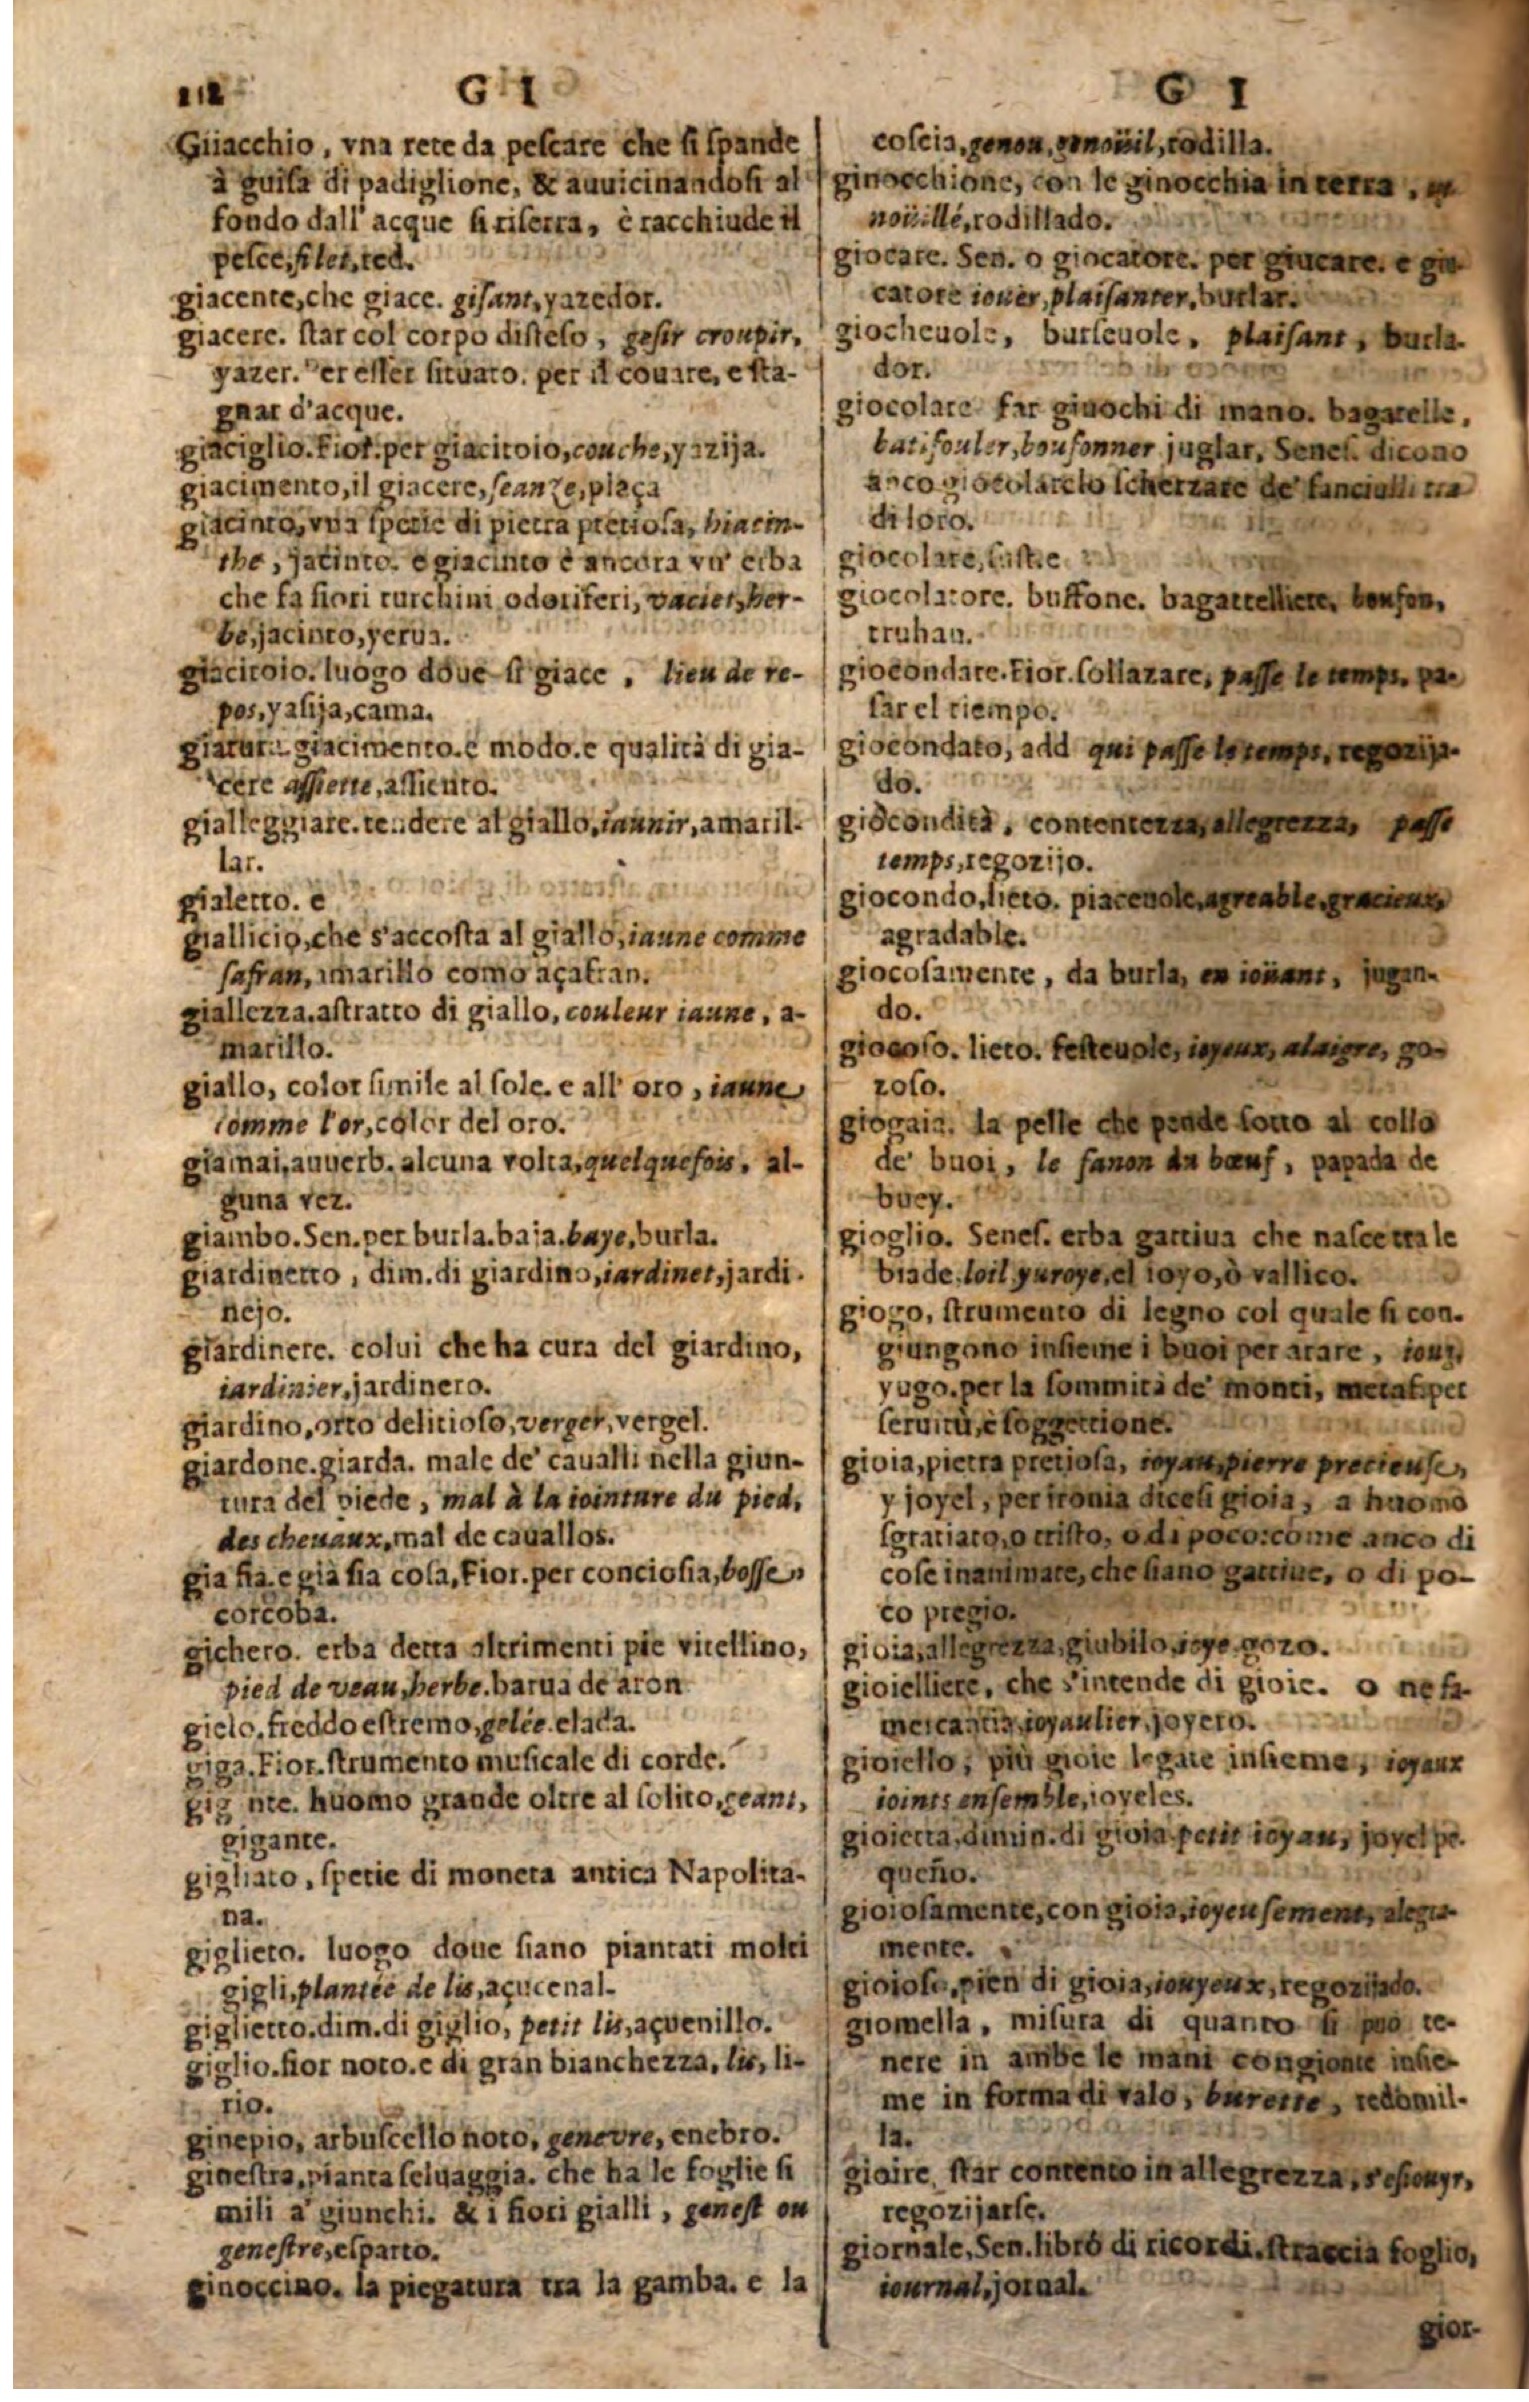 G I
G I
Giiacchio, vna rete da peſcare che ſi ſpande
à guiſa di padiglione, & auuicinandoſi al
fondo dall' acque ſi riſerra, è racchiude il
peſce, filet, red.
giacente, che giace. giſant, yazedor.
giacere. ſtar col corpo diſteſo, geſir croupir,
yazer. er eſſer ſituato. per il couare, e ſta-
gnar d'acque.
giaciglio. Fior. per giacitoio, couche, yazija.
giacimento, il giacere, ſeanze, plaça
giacinto, vna ſpetie di pietra pretioſa, hiacin-
the, jacinto. e giacinto è ancora vn' erba
che fa fiori turchini odoriferi, vaciet, her-
be, jacinto, yerua.
giacitoio. luogo doue ſi giace, lieu de re-
pos, yaſija, cama.
giatura giacimento. e modo. e qualità di gia-
cere aſſiette, aſſiento.
gialleggiare. tendere al giallo, iaunir, amaril-
lar.
gialetto. e
giallicio, che s'accoſta al giallo, iaune comme
ſafran, amarillo como açafran.
giallezza. aſtratto di giallo, couleur iaune, a-
marillo.
giallo, color ſimile al ſole. e all' oro, iaune
comme l'or, color del oro.
giamai, auuerb. alcuna volta, quelquefois, al-
guna vez.
giambo. Sen. per burla. baja. baye, burla.
giardinetto, dim. di giardino, iardinet, jardi-
nejo.
giardinere. colui che ha cura del giardino,
iardinier, jardinero.
giardino, orto delitioſo, verger, vergel.
giardone. giarda. male de' caualli nella giun-
tura del piede, mal à la iointure du pied,
des cheuaux, mal de cauallos.
gia ſia. e già ſia coſa, Fior. per concioſia, boſſe,
corcoba.
gichero. erba detta altrimenti pie vitellino,
pied de veau, herbe. barua de aron
gielo. freddo eſtremo, gelée. elada.
giga. Fior. ſtrumento muſicale di corde.
gig nte. huomo grande oltre al ſolito, geant,
gigante.
gigliato, ſpetie di moneta antica Napolita-
na.
giglieto. luogo doue ſiano piantati molti
gigli, plantée de lis, açucenal.
giglietto. dim. di giglio, petit lis, açuenillo.
giglio. fior noto. e di gran bianchezza, lis, li-
rio.
ginepio, arbuſcello noto, genevre, enebro.
gineſtra, pianta ſeluaggia. che ha le foglie ſi
mili a' giunchi. & i fiori gialli, geneſt ou
geneſtre, eſparto.
ginoccino. la piegatura tra la gamba. e la
coſcia, genou, genoüil, rodilla.
ginocchione, con le ginocchia in terra,
noüillé, rodillado.
giocare. Sen. o giocatore. per giucare. e giu-
catore iouer, plaiſanter, burlar.
giocheuole, burleuole, plaiſant, burla-
dor.
giocolare far giuochi di mano. bagatelle,
batifouler, boufonner juglar, Seneſ. dicono
anco giocolare lo ſcherzare de' fanciulli tra
di loro.
giocolare,
giocolatore. buffone. bagattelliere, boufon,
truhan.
giocondare. Fior. ſollazare, paſſe le temps, pa-
ſar el tiempo.
giocondato, add qui paſſe le temps, regozija-
do.
giocondità, contentezza, allegrezza, paſſe
temps, regozijo.
giocondo, lieto. piaceuole, agreable, gracieux,
agradable.
giocoſamente, da burla, en ioüant, jugan-
do.
giocoſo. lieto. feſteuole, ioyeux, alaigre, go-
zoſo.
giogaia. la pelle che pende ſotto al collo
de' buoi, le fanon du bœuf, papada de
buey.
gioglio. Seneſ. erba gattiua che naſce tra le
biade. loil yuroye, el ioyo, ò vallico.
giogo, ſtrumento di legno col quale ſi con-
giungono inſieme i buoi per arare, ioug,
yugo. per la ſommità de' monti, metaf. per
ſeruitù, è ſoggettione.
gioia, pietra pretioſa, ioyau, pierre precieuſe,
y joyel, per ironia diceſi gioia, a huomo
ſgratiato, o triſto, o di poco: come anco di
coſe inanimate, che ſiano gattiue, o di po-
co pregio.
gioia, allegrezza, giubilo, ioye. gozo.
gioielliere, che s'intende di gioie. o ne fa-
mercantia, ioyaulier, joyero.
gioiello, più gioie legate inſieme, ioyaux
ioints enſemble, ioyeles.
gioietta, dimin. di gioia petit ioyau, joyel pe-
queño.
gioioſamente, con gioia, ioyeuſement, alegra-
mente.
gioioſo, pien di gioia, iouyeux, regozijado.
giomella, miſura di quanto ſi può te-
nere in ambe le mani congionte inſie-
me in forma di vaſo, burette, redomil-
la.
gioire, ſtar contento in allegrezza, s'eſiouyr,
regozijarſe.
giornale, Sen. libro di ricordi. ſtraccia foglio,
iournal, jornal.
gior-